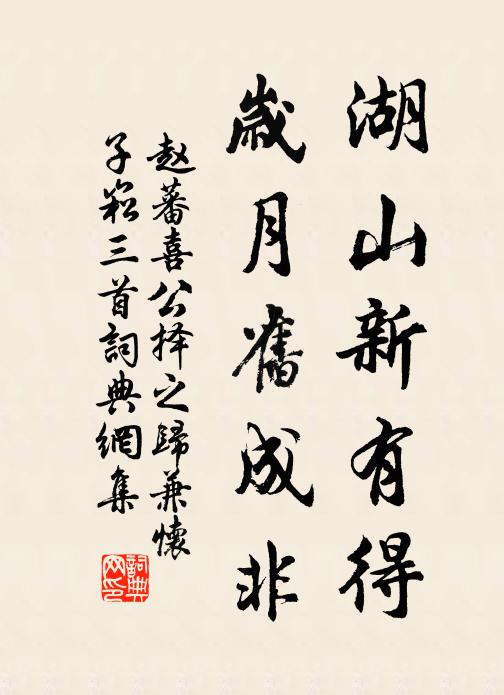 湖山新有得
歲月舊成非
赵蕃喜公择之歸兼懷
子崧三首詞典網集
詞典网印